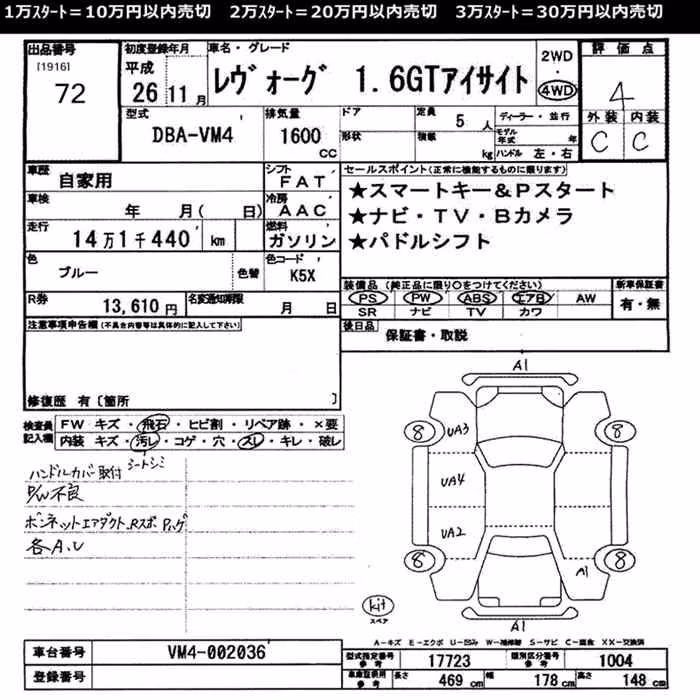 1万ｽﾀｰﾄ＝10万円以内売切　2万ｽﾀｰﾄ＝20万円以内売切　3万ｽﾀｰﾄ＝30万円以内売切
出品番号 初度登録年月 車名・グレード 2WD 評価点
[1916] 平成
72 26 11月 レヴォーグ 1.6GTアイサイト 4WD 4
外装 内装
型式 排気量 ドア 定員 5人 ディーラー・並行
DBA-VM4 1600 CC 形状 積載 kg モデル年式 年 C C
ハンドル 左・右
車歴 自家用 シフト FAT セールスポイント(正常に機能するものに限ります)
★スマートキー&Pスタート
車検 年 月( 日) 冷房 AAC ★ナビ・TV・Bカメラ
走行 14万1千440 km 燃料 ガソリン ★パドルシフト
色 ブルー 色替 色コード K5X
装備品(純正品に限り○をつけてください) 新車保証書
R券 13,610円 名変通知期限 月 日 PS PW ABS エアB AW 有・無
SR ナビ TV カワ
注意事項申告欄(不具合内容等は具体的に記入して下さい) 後日品 保証書・取説
修復歴 有〔箇所 〕
検査員記入欄 FW キズ・飛石・ヒビ割・リペア跡・×要
内装 キズ・汚レ・コゲ・穴・スレ・キレ・破レ
シートシミ
ハンドルカバー取付
P/W不良
ボンネットエアダクト、Rスポ
各A.U
A1
8 UA3 8
UA4
UA2
8 A1 8
kit
スペア
A1
A-キズ E-エクボ U-凹ミ W-補修跡 S-サビ C-腐食 XX-交換済
車台番号 VM4-002036
型式指定番号 参考 17723 類別区分番号 参考 1004
登録番号 車庫証明用 参考 長さ 469 cm 幅 178 cm 高さ 148 cm